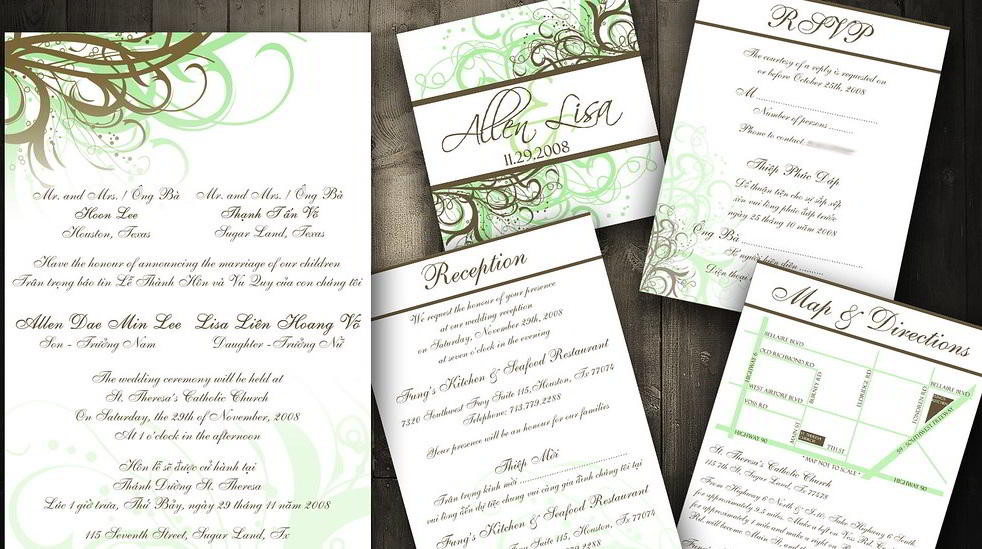 Mr. and Mrs. / Ông Bà
Hoon Lee
Houston, Texas
Mr. and Mrs. / Ông Bà
Thạnh Tấn Võ
Sugar Land, Texas
Have the honour of announcing the marriage of our children
Trân trọng báo tin Lễ Thành Hôn và Vu Quy của con chúng tôi
Allen Dae Min Lee
Son - Trưởng Nam
Lisa Liên Hoang Võ
Daughter - Trưởng Nữ
The wedding ceremony will be held at
St. Theresa's Catholic Church
On Saturday, the 29th of November, 2008
At 1 o'clock in the afternoon
Hôn lễ sẽ được cử hành tại
Thánh Đường St. Theresa
Lúc 1 giờ trưa, Thứ Bảy, ngày 29 tháng 11 năm 2008
115 Seventh Street, Sugar Land, Tx
Allen Lisa
11.29.2008
Reception
We request the honour of your presence
at our wedding reception
on Saturday, November 29th, 2008
at seven o'clock in the evening
Fung's Kitchen & Seafood Restaurant
7320 Southwest Frwy Suite 115, Houston, Tx 77074
Telephone: 713.779.2288
Your presence will be an honour for our families
Thiệp Mời
Trân trọng kính mời
vui lòng đến dự tiệc chung vui cùng gia đình chúng tôi tại
Fung's Kitchen & Seafood Restaurant
Frwy Suite 115, Houston, Tx 77074
779.2288
RSVP
The courtesy of a reply is requested on
or before October 25th, 2008
M
Number of persons
Phone to contact
Thiệp Phúc Đáp
Để thuận tiện cho sự sắp xếp
xin vui lòng phúc đáp trước
ngày 25 tháng 10 năm 2008
Ông Bà
Số người hiện diện
Điện thoại
Map & Directions
BELLAIRE BLVD
OLD RICHMOND RD
HIGHWAY 6
WEST AIRPORT BLVD
BURNEY RD
ELDRIDGE RD
VOSS RD
MAIN ST
HIGHWAY 90
BELLAIRE BLVD
FONDREN RD
59 - SOUTHWEST FREEWAY
HIGHWAY 90
*MAP NOT TO SCALE*
St. Theresa's Catholic Church
115 7th St, Sugar Land, Tx 77478
From Highway 6 North & 10, Take Highway 6 South
for approximately 9.5 miles. Make a left on Voss Rd.
for approximately 1 mile and make a
Rd will become Main St and the